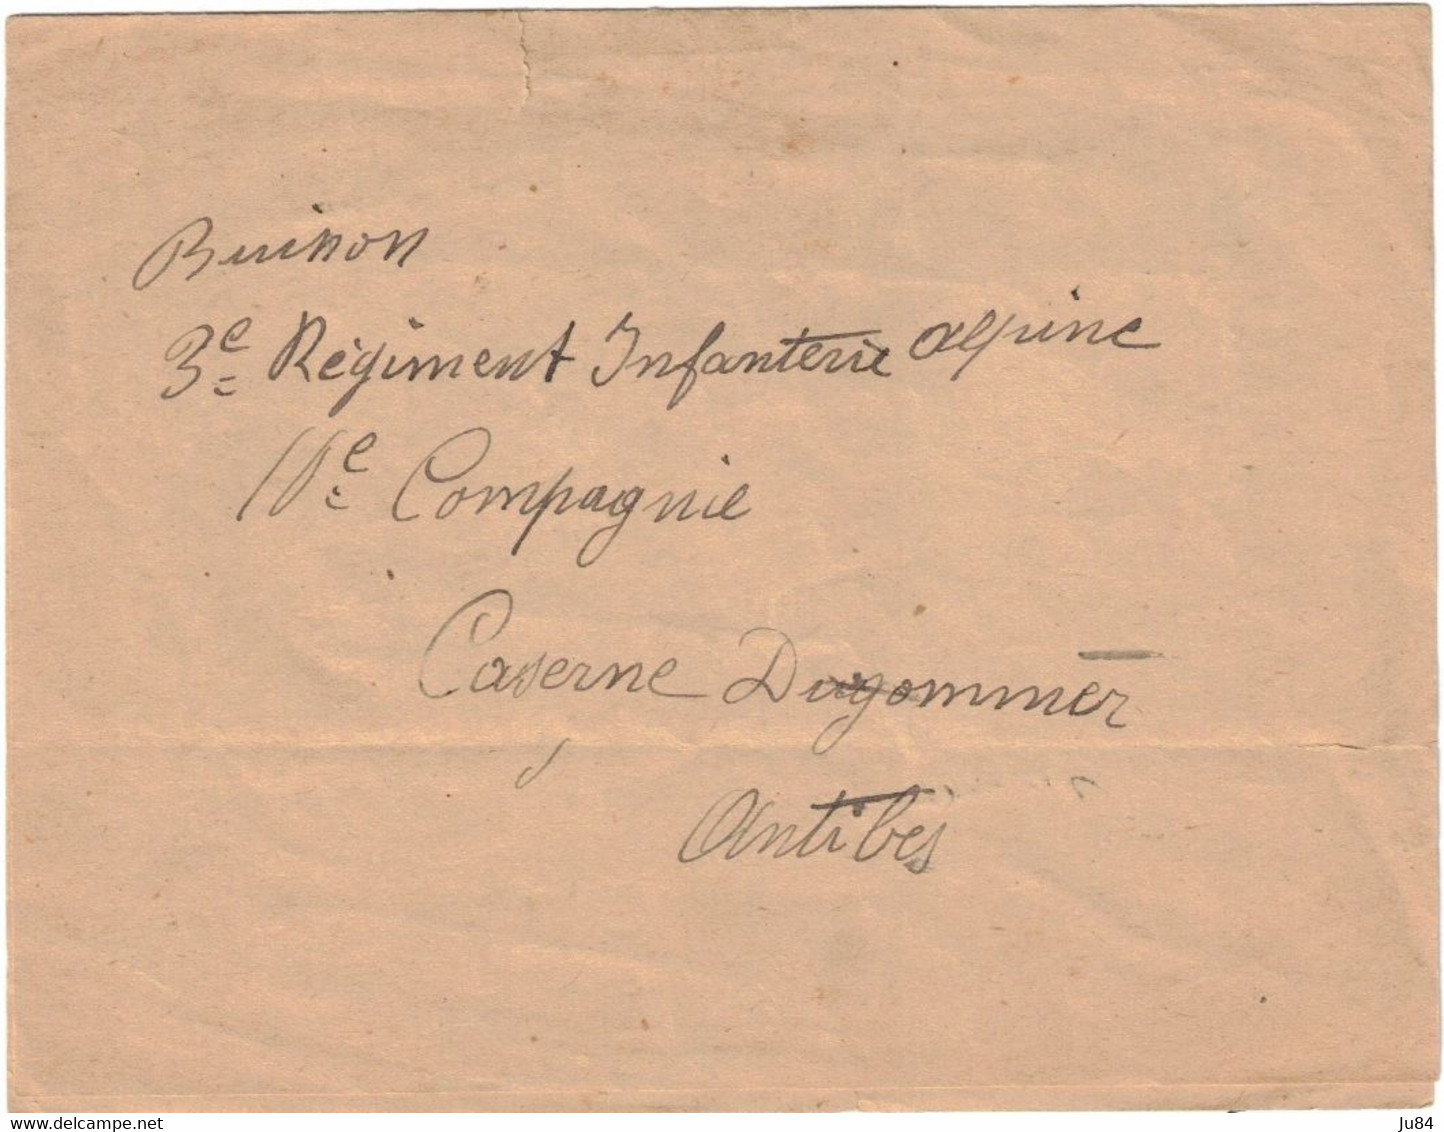 Buisson
3e Régiment Infanterie alpine
11e Compagnie
Caserne Dugommier
Antibes
delcampe.net
Ju84